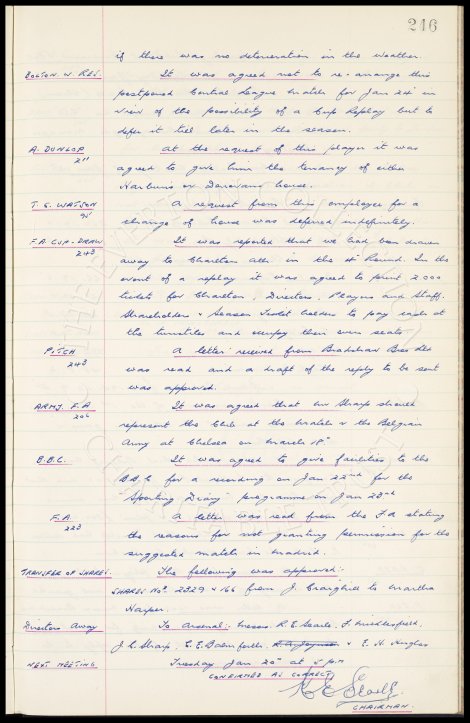 216
if there was no deterioration in the weather.
BOLTON. W. RES. It was agreed not to re-arrange this
postponed Central League match for Jan 24th in
view of the possibility of a Cup Replay but to
defer it till later in the season.
A. DUNLOP At the request of this player it was
211 agreed to give him the tenancy of either
Harburns or Donovans house.
T. G. WATSON A request from this employee for a
change of house was deferred indefinitely.
F.A CUP-DRAW It was reported that we had been drawn
243 away to Charlton Ath. in the 4th Round. In the
event of a replay it was agreed to print 2000
tickets for Charlton, Directors, Players and Staff.
Shareholders & Season Ticket holders to pay cash at
the turnstiles and occupy their own seats.
PITCH A letter received from Bradshaw Bros Ltd
243 was read and a draft of the reply to be sent
was approved.
ARMY. F.A It was agreed that Mr Sharp should
206 represent the Club at the match v the Belgian
Army at Chelsea on March 18th
B.B.C. It was agreed to give facilities to the
B.B.C for a recording on Jan 22nd for the
"Sporting Diary" programme on Jan 23rd
F.A. A letter was read from the F.A stating
223 the reasons for not granting permission for the
suggested match in Madrid.
TRANSFER OF SHARES. The following was approved:-
SHARES Nos. 2329 & 166 from J. Craighill to Martha
Harper.
Directors Away To Arsenal:- Messrs. R. E. Searle, F. Micklesfield,
J. C. Sharp, C. E. Balmforth, & E. H. Hughes
NEXT MEETING Tuesday Jan 20th at 5 pm
CONFIRMED AS CORRECT
CHAIRMAN.